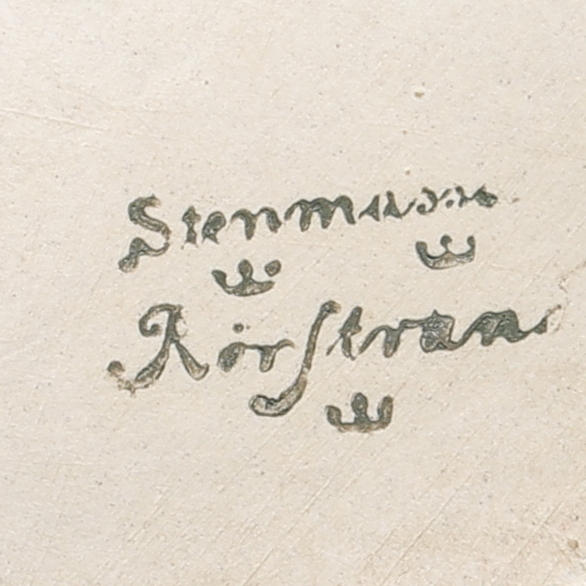 Stenmassa
Rörstran